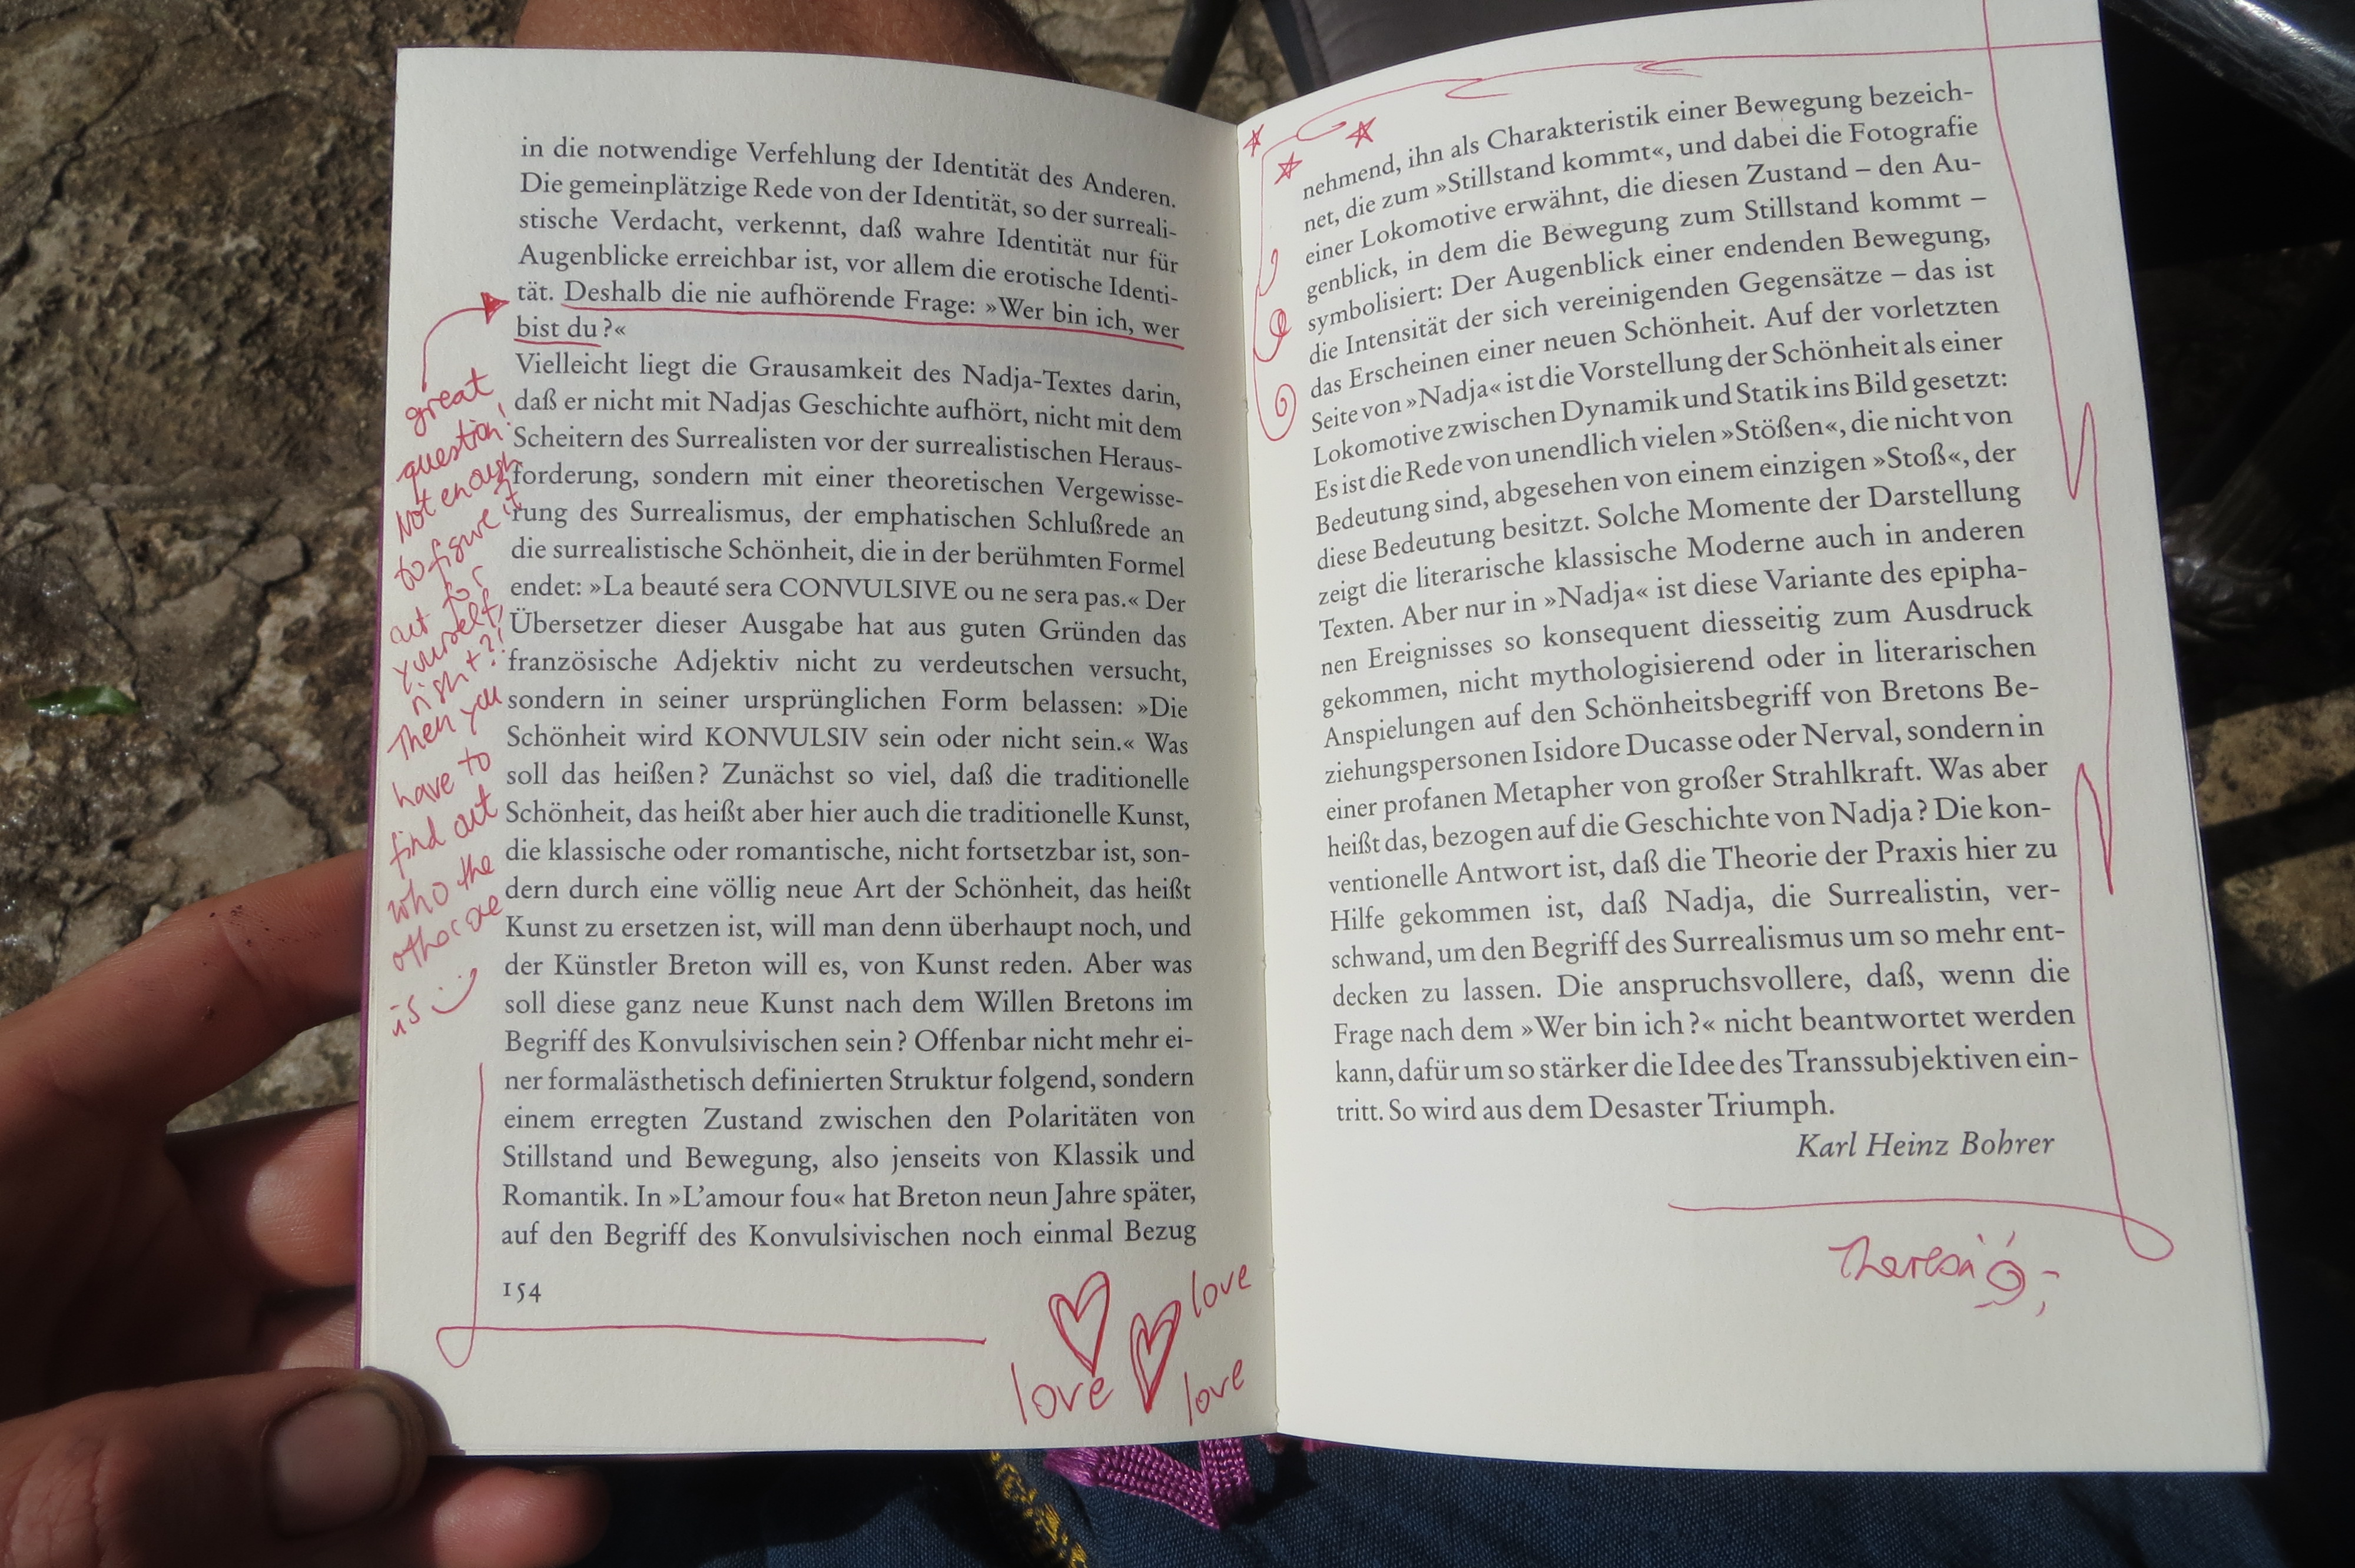 in die notwendige Verfehlung der Identität des Anderen.
Die gemeinplätzige Rede von der Identität, so der surreali-
stische Verdacht, verkennt, daß wahre Identität nur für
Augenblicke erreichbar ist, vor allem die erotische Identi-
tät. Deshalb die nie aufhörende Frage: »Wer bin ich, wer
bist du?«
Vielleicht liegt die Grausamkeit des Nadja-Textes darin,
daß er nicht mit Nadjas Geschichte aufhört, nicht mit dem
Scheitern des Surrealisten vor der surrealistischen Heraus-
forderung, sondern mit einer theoretischen Vergewisse-
rung des Surrealismus, der emphatischen Schlußrede an
die surrealistische Schönheit, die in der berühmten Formel
endet: »La beauté sera CONVULSIVE ou ne sera pas.« Der
Übersetzer dieser Ausgabe hat aus guten Gründen das
französische Adjektiv nicht zu verdeutschen versucht,
sondern in seiner ursprünglichen Form belassen: »Die
Schönheit wird KONVULSIV sein oder nicht sein.« Was
soll das heißen? Zunächst so viel, daß die traditionelle
Schönheit, das heißt aber hier auch die traditionelle Kunst,
die klassische oder romantische, nicht fortsetzbar ist, son-
dern durch eine völlig neue Art der Schönheit, das heißt
Kunst zu ersetzen ist, will man denn überhaupt noch, und
der Künstler Breton will es, von Kunst reden. Aber was
soll diese ganz neue Kunst nach dem Willen Bretons im
Begriff des Konvulsivischen sein? Offenbar nicht mehr ei-
ner formalästhetisch definierten Struktur folgend, sondern
einem erregten Zustand zwischen den Polaritäten von
Stillstand und Bewegung, also jenseits von Klassik und
Romantik. In »L'amour fou« hat Breton neun Jahre später,
auf den Begriff des Konvulsivischen noch einmal Bezug
154
great
question!
Not enough
to figure it
out for
yourself,
right?!
Then you
have to
find out
who the
other one
is :)
love
love
love
nehmend, ihn als Charakteristik einer Bewegung bezeich-
net, die zum »Stillstand kommt«, und dabei die Fotografie
einer Lokomotive erwähnt, die diesen Zustand – den Au-
genblick, in dem die Bewegung zum Stillstand kommt –
symbolisiert: Der Augenblick einer endenden Bewegung,
die Intensität der sich vereinigenden Gegensätze – das ist
das Erscheinen einer neuen Schönheit. Auf der vorletzten
Seite von »Nadja« ist die Vorstellung der Schönheit als einer
Lokomotive zwischen Dynamik und Statik ins Bild gesetzt:
Es ist die Rede von unendlich vielen »Stößen«, die nicht von
Bedeutung sind, abgesehen von einem einzigen »Stoß«, der
diese Bedeutung besitzt. Solche Momente der Darstellung
zeigt die literarische klassische Moderne auch in anderen
Texten. Aber nur in »Nadja« ist diese Variante des epipha-
nen Ereignisses so konsequent diesseitig zum Ausdruck
gekommen, nicht mythologisierend oder in literarischen
Anspielungen auf den Schönheitsbegriff von Bretons Be-
ziehungspersonen Isidore Ducasse oder Nerval, sondern in
einer profanen Metapher von großer Strahlkraft. Was aber
heißt das, bezogen auf die Geschichte von Nadja? Die kon-
ventionelle Antwort ist, daß die Theorie der Praxis hier zu
Hilfe gekommen ist, daß Nadja, die Surrealistin, ver-
schwand, um den Begriff des Surrealismus um so mehr ent-
decken zu lassen. Die anspruchsvollere, daß, wenn die
Frage nach dem »Wer bin ich?« nicht beantwortet werden
kann, dafür um so stärker die Idee des Transsubjektiven ein-
tritt. So wird aus dem Desaster Triumph.
Karl Heinz Bohrer
Theresa